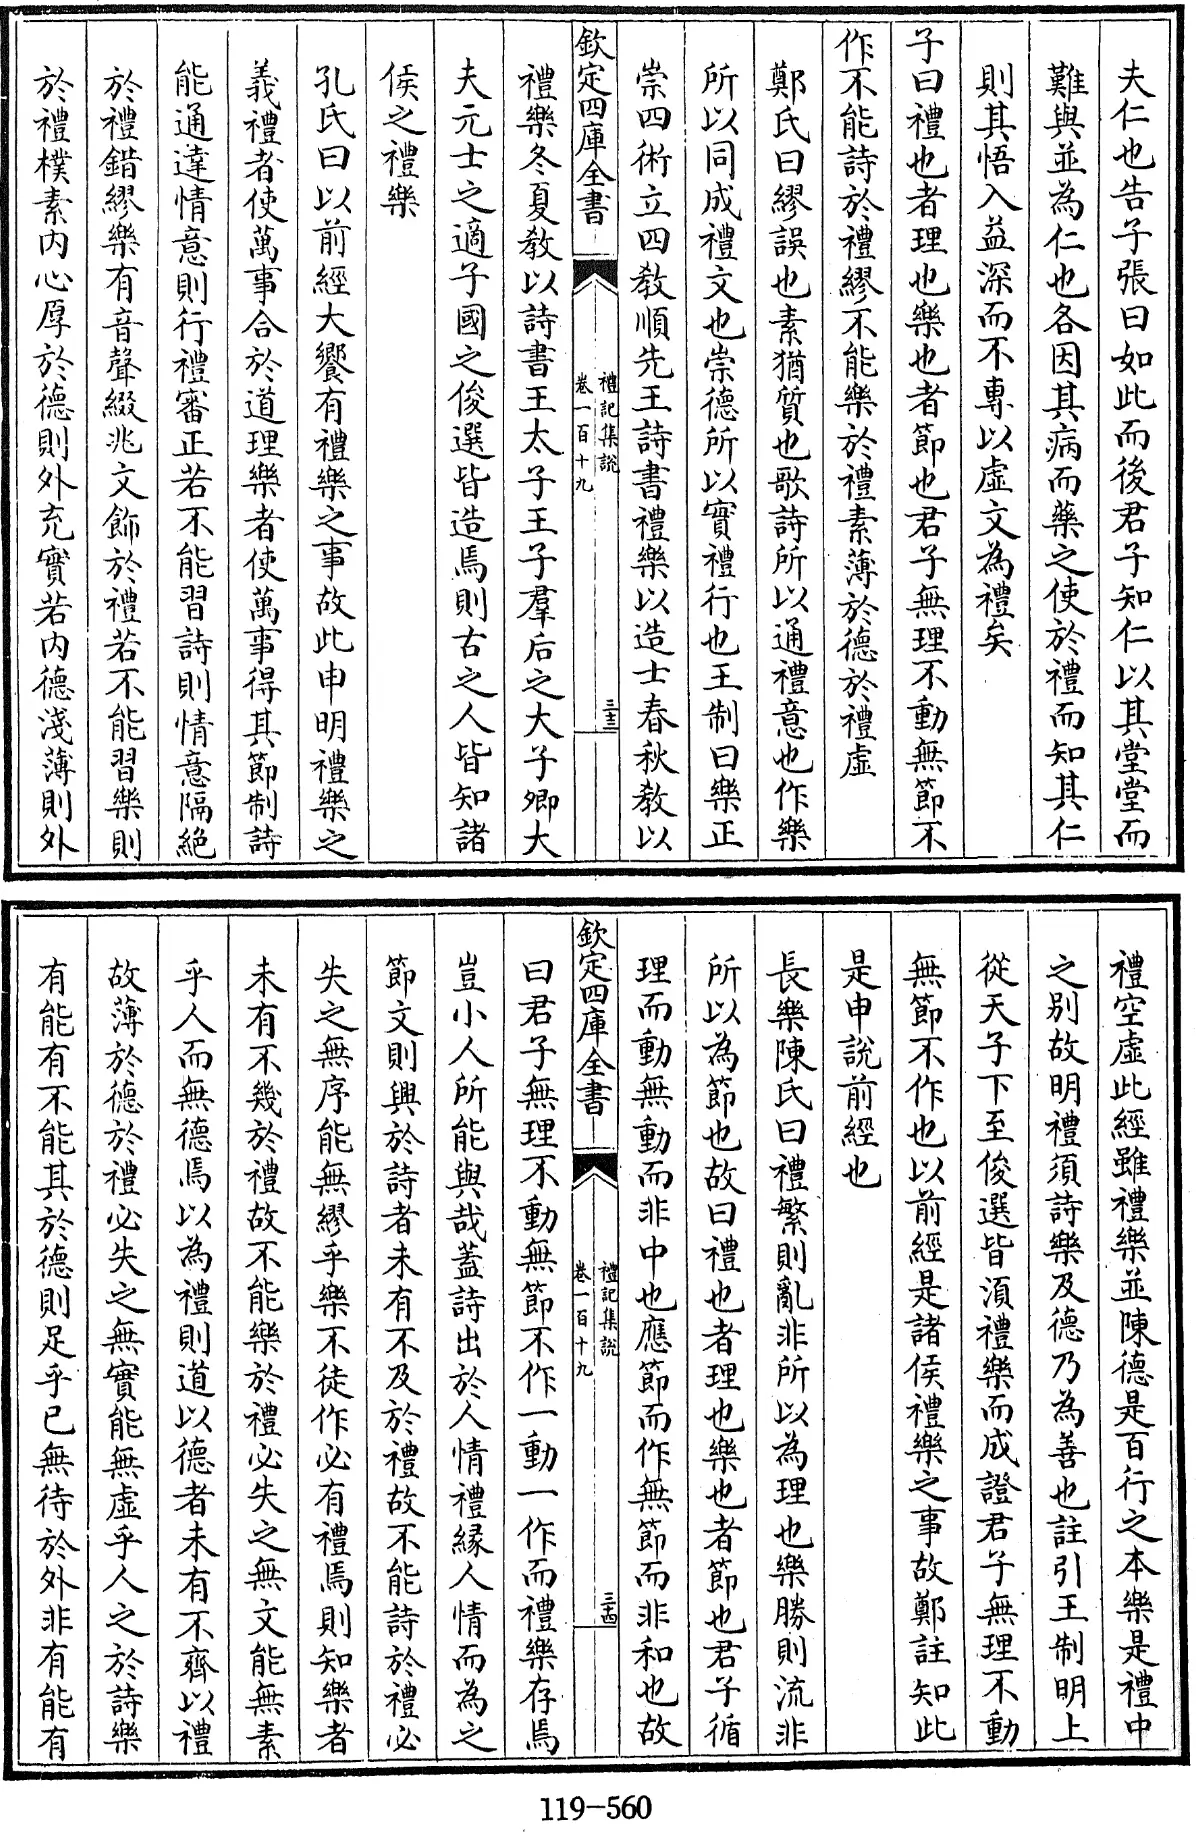 夫仁也告子張曰如此而後君子知仁以其堂堂而
難與並為仁也各因其病而藥之使於禮而知其仁
則其悟入益深而不專以虛文為禮矣
子曰禮也者理也樂也者節也君子無理不動無節不
作不能詩於禮繆不能樂於禮素薄於德於禮虛
鄭氏曰繆誤也素猶質也歌詩所以通禮意也作樂
所以同成禮文也崇德所以實禮行也王制曰樂正
崇四術立四教順先王詩書禮樂以造士春秋教以
欽定四庫全書
禮記集說
卷一百十九
三十三
禮樂冬夏教以詩書王太子王子羣后之大子卿大
夫元士之適子國之俊選皆造焉則古之人皆知諸
侯之禮樂
孔氏曰以前經大饗有禮樂之事故此申明禮樂之
義禮者使萬事合於道理樂者使萬事得其節制詩
能通達情意則行禮審正若不能習詩則情意隔絶
於禮錯繆樂有音聲綴兆文飾於禮若不能習樂則
於禮樸素內心厚於德則外充實若內德淺薄則外
禮空虛此經雖禮樂並陳德是百行之本樂是禮中
之別故明禮須詩樂及德乃為善也註引王制明上
從天子下至俊選皆須禮樂而成證君子無理不動
無節不作也以前經是諸侯禮樂之事故鄭註知此
是申說前經也
長樂陳氏曰禮繁則亂非所以為理也樂勝則流非
所以為節也故曰禮也者理也樂也者節也君子循
理而動無動而非中也應節而作無節而非和也故
欽定四庫全書
禮記集說
卷一百十九
三十四
曰君子無理不動無節不作一動一作而禮樂存焉
豈小人所能與哉蓋詩出於人情禮緣人情而為之
節文則興於詩者未有不及於禮故不能詩於禮必
失之無序能無繆乎樂不徒作必有禮焉則知樂者
未有不幾於禮故不能樂於禮必失之無文能無素
乎人而無德焉以為禮則道以德者未有不齊以禮
故薄於德於禮必失之無實能無虛乎人之於詩樂
有能有不能其於德則足乎已無待於外非有能有
119-560